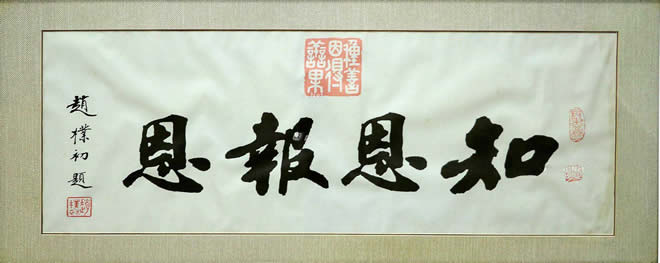 種善
因得
善果
知恩報恩
趙樸初題